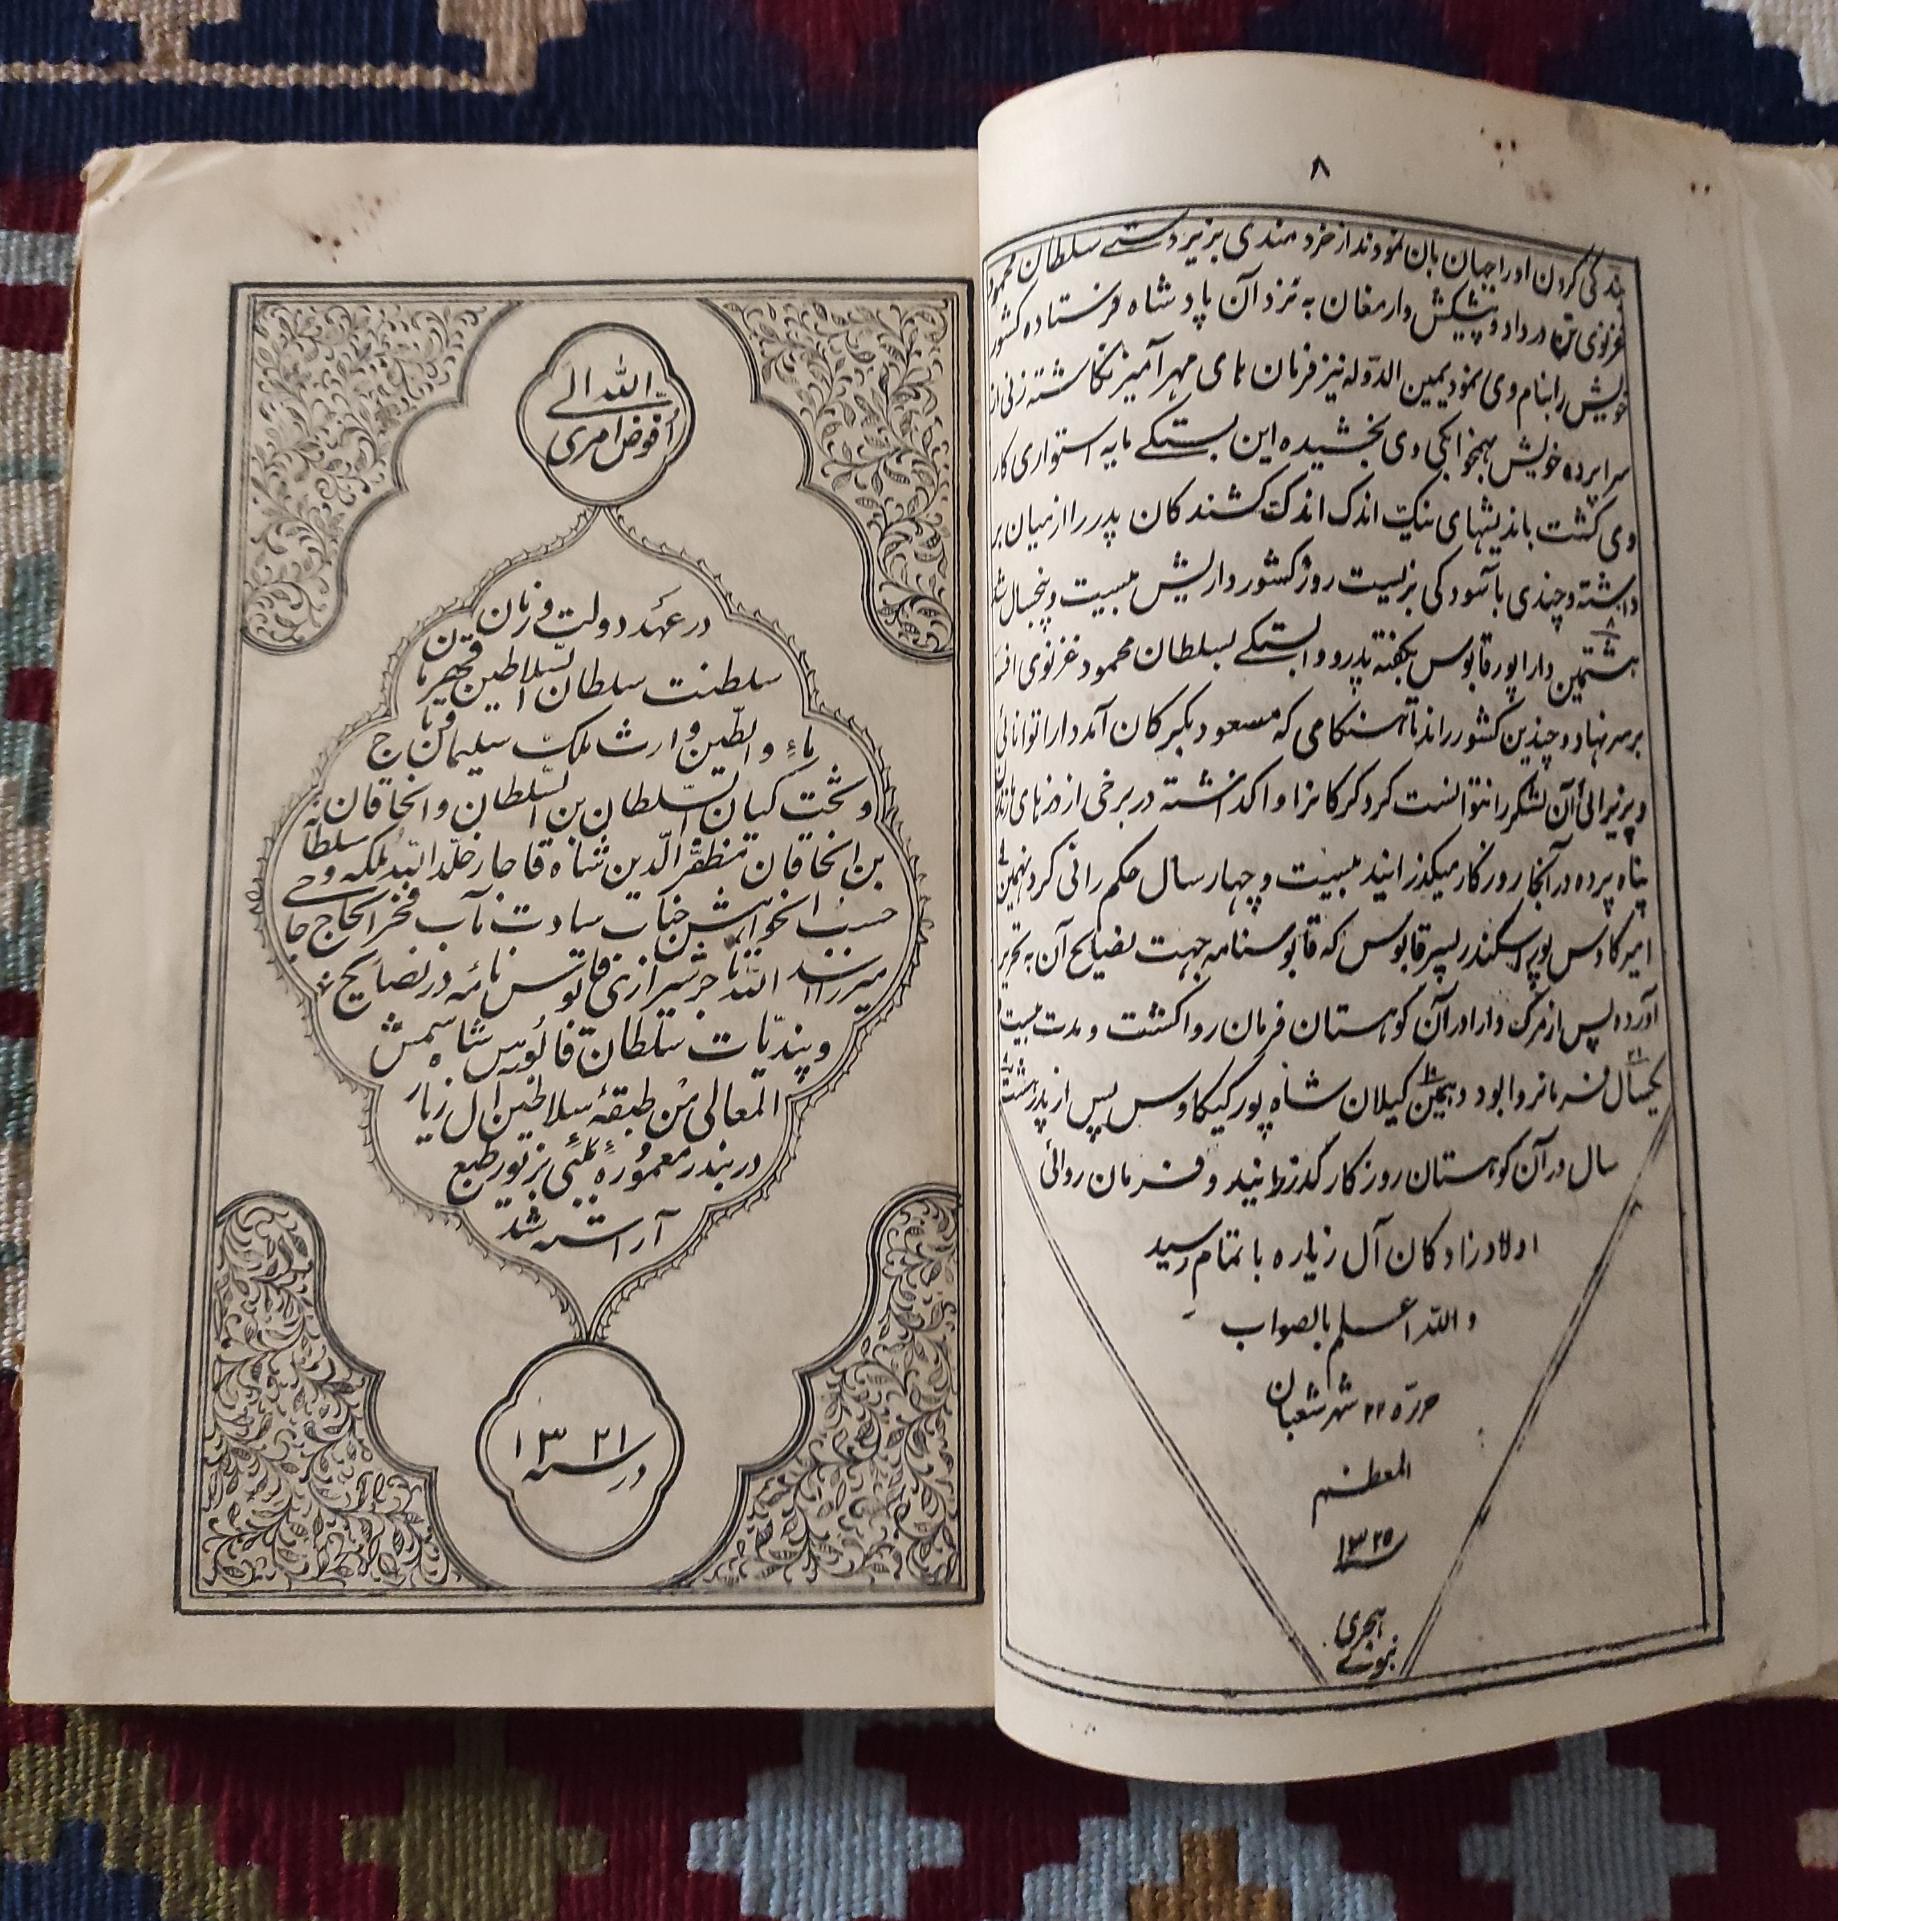 ۸
بندگی کردن او را جهان بان نمودند از خردمندی بزیر دستے سلطان محمود
غزنوی تن در داد و پیشکش و ارمغان به نزد آن پادشاه فرستاده کشور
خویش را بنام وی نمود یمین الدّوله نیز فرمان های مهر آمیز نگاشته زنی از
سراپرده خویش بهمخوابگی وی بخشیده این بستگے مایه استواری کار
وی گشت باندیشهای نیک اندک اندک کشندگان پدر را از میان بر
داشته و چندی با آسودگی بزیست روز کشور داریش بیست و پنجسال شد
۸
هشتمین دارا پور قابوس بگفته پدر و وابستگے بسلطان محمود غزنوی افسر
بر سر نهاد و چندین کشور راند تا هنگامی که مسعود بگیرکان آمد دارا توانائی
و پذیرائی آن لشکر را نتوانست کرد کرکانرا واگذاشته در برخی از دزهای
پناه برده در آنجا روزگار میگذرانید بیست و چهار سال حکم رانی کرد نهمین
امیر کاوس پور اسکندر پسر قابوس که قابوسنامه جهت نصایح آن به تحریر
آورده پس از مرگ دارا در آن کوهستان فرمان روا گشت و مدت بیست
۲۱
یکسال فرمانروا بود دهمین گیلان شاه پور کیکاوس پس از پدر هشت
۱۰
۸
سال در آن کوهستان روزگار گذرانید و فرمان روائی
اولاد زادگان آل زیاره باتمام رسید
و اللّه اعلم بالصواب
حررّه ۲۲ شهر شعبان
المعظم
سنه ۱۳۲۵
هجری
نبوے
اللّه الے
اُفوض امری
در عهد دولت و زمان
سلطنت سلطان السّلاطین قهرمان
ماء و الطّین وارث ملک سلیمان تاج
و تخت کیان السّلطان بن السّلطان و الخاقان
بن الخاقان مظفّر الدّین شاه قاجار خلّد اللّه ملکه و سلطانه
حسب الخواهش جناب سیادت مآب فخر الحاج حاجی
میرزا اسد اللّه تاجر شیرازی قابوس نامه در نصایح
و پندیات سلطان قابوس شاه شمس
المعالی من طبقهٔ سلاطین آل زیار
در بندر معمورهٔ بمبئی بزیور طبع
آراسته شد
در سنه ۱۳۲۱